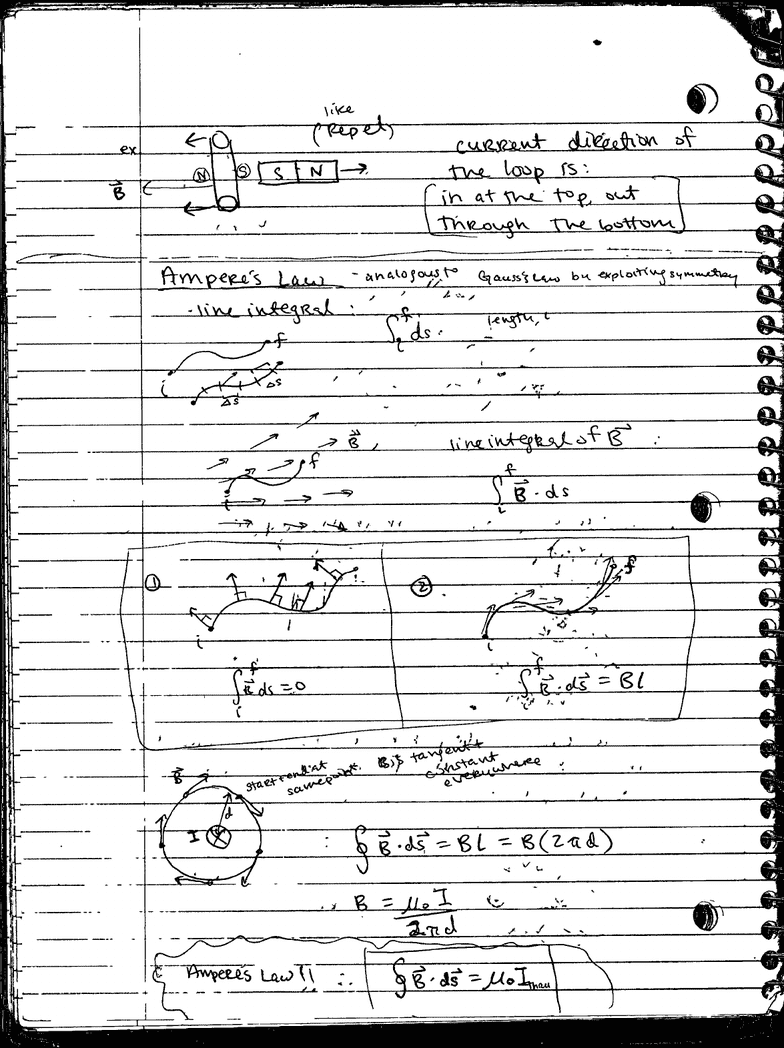 like
(repel)
ex
current direction of
the loop is:
in at the top, out
through the bottom
N S S N
B⃗
Ampere's Law - analogous to Gauss's law by exploiting symmetry
- line integral :
∫ᵢᶠ ds length, l
i f
Δs Δs
B⃗
line integral of B⃗
i f
∫ᵢᶠ B⃗ · ds
① ②
i f
i
∫ᵢᶠ B⃗ ds = 0
∫ᵢᶠ B⃗ · ds⃗ = Bl
start + end at
same point.
B is tangent +
constant
everywhere
B⃗
d
I
∮ B⃗ · ds⃗ = Bl = B(2πd)
B = μ₀I / 2πd
Ampere's Law!! ∴ ∮ B⃗ · ds⃗ = μ₀I thru